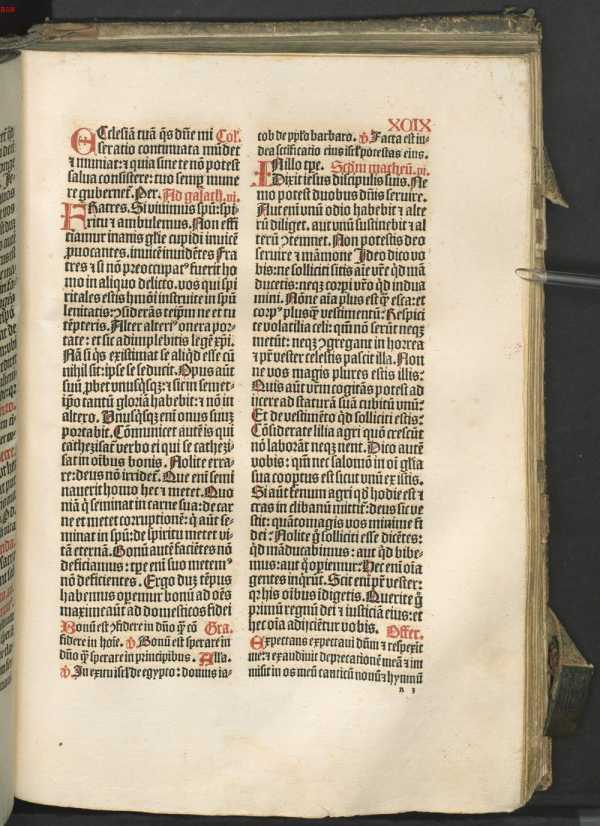 XCIX
ECclesiā tuā q̄s dn̄e mi Col.
seratio continuata mūdet
⁊ muniat: ⁊ quia sine te nō potest
salua consistere: tuo semꝑ mune
re gubernet̄. Per. Ad galath. vi.
FRatres. Si viuimus spū: spi-
ritu ⁊ ambulemus. Non effi
ciamur inanis gl̄ie cupidi inuicē
ꝓuocantes. inuicē inuidētes Fra
tres ⁊ si nō preocupatꝰ fuerit ho
mo in aliquo delicto. vos qui spi
ritales estis hmōi instruite in spū
lenitatis: ꝯsiderās teip̄m ne et tu
tēpteris. Alter alteriꝰ onera por-
tate: et sic adimplebitis legē xp̄i.
Nā si q̄s existimat se aliqd esse cū
nihil sit: ip̄se se seducit. Opus aūt
suū ꝓbet vnusq̄sq̄: ⁊ sic in semet-
ip̄o tantū gloriā habebit: ⁊ nō in
altero. Vnusq̄sq̄ eni onus suum
portabit. Cōmunicet autē is qui
cathezisat̄ verbo ei qui se cathezi-
sat in oībus bonis. Nolite erra-
re: deus nō irridet̄. Que eni semi
nauerit homo hec ⁊ metet. Quo
niā q̄ seminat in carne sua: de car
ne et metet corruptionē: q̄ aūt se-
minat in spū: de spiritu metet vi-
tā eternā. Bonū autē faciētes nō
deficiamus: tpe eni suo metemꝰ
nō deficientes. Ergo dum tēpus
habemus operemur bonū ad oēs
maxime aūt ad domesticos fidei
Bonū est ꝯfidere in dn̄o q̄ cō Gra.
fidere in hoīe. v. Bonū est sperare in
dn̄o q̄ sperare in principibus. Alla.
v. In exitu isrl̄ de egypto: domus ia-
cob de pplo barbaro. v. Facta est iu-
dea sctificatio eius isrl̄ potestas eius.
IN illo tpe. Scdm matheū. vi.
Dixit iesus discipulis suis. Ne
mo potest duobus dn̄is seruire.
Aut eni vnū odio habebit ⁊ alte
rū diliget. aut vnū sustinebit ⁊ al
terū ꝯtemnet. Non potestis deo
seruire ⁊ māmone Ideo dico vo
bis: ne solliciti sitis aīe vr̄e qd mā
ducetis: neq̄ corpi vr̄o qd indua
mini. Nōne aīa plus est q̄ esca: et
corpꝰ plusq̄ vestimentū: Respici
te volatilia celi: qm̄ nō serūt neq̄
metūt: neq̄ ꝯgregant in horrea
⁊ pr̄ vester celestis pascit illa. Non
ne vos magis plures estis illis:
Quis aūt vr̄m cogitās potest ad
ijcere ad staturā suā cubitū vnū:
Et de vestimēto qd solliciti estis:
Cōsiderate lilia agri quō crescūt
nō laborāt neq̄ nent. Dico autē
vobis: qm̄ nec salomō in oī gl̄ia
sua cooptus est sicut vnū ex istis.
Si aūt fenum agri qd hodie est ⁊
cras in clibanū mittit̄: deus sic ve
stit: quāto magis vos minime fi
dei: Nolite q̄ solliciti esse dicētes:
qd māducabimus: aut qd bibe-
mus: aut q̄ opiemur: Hec eni oīa
gentes inq̄rūt. Scit eni pr̄ vester:
q̄ his oībus idigetis. Querite g̊
primū regnū dei ⁊ iusticiā eius: et
hec oīa adijciētur vobis. Offer.
Expectans expectaui dn̄m ⁊ respexit
me: ⁊ exaudiuit deprecationē meā ⁊ im
misit in os meū canticū nouū ⁊ hymnū
n 3